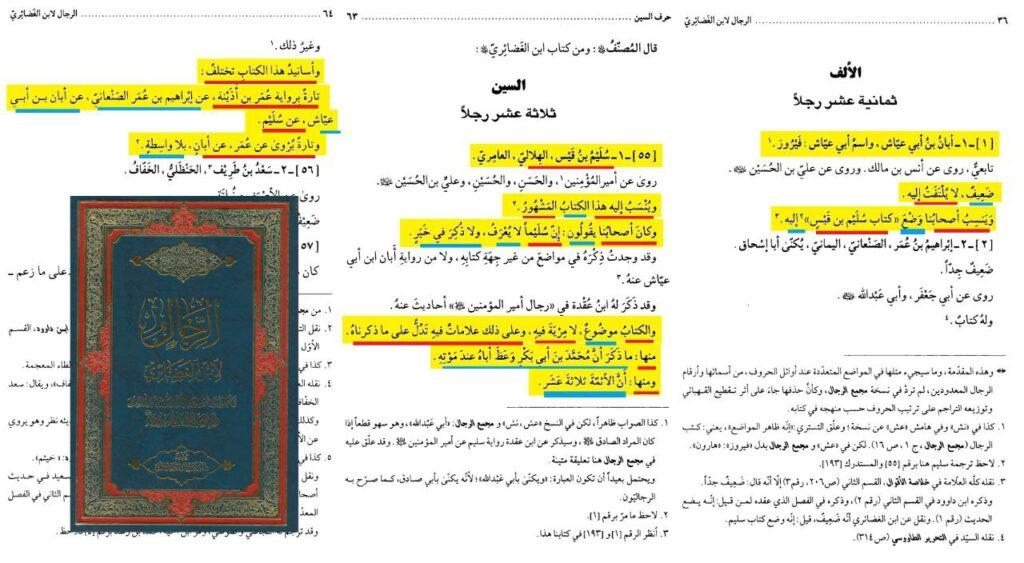 ٣٦ ........ الرجال لابن الغضائريّ
الألف
ثمانية عشر رجلاً
[١] ـ ١ ـ أبانُ بنُ أبي عيّاش، واسمُ أبي عيّاش: فَيْرُوز.١
تابعيٌّ، روى عن أنس بن مالك. وروى عن عليّ بن الحُسَيْن ﷺ.
ضَعِيفٌ، لا يُلْتَفَتُ إليه.
وَيَنسِبُ أصحابُنا وَضْعَ «كتاب سُلَيْم بن قَيْس»٢ إليه.٣
[٢] ـ ٢ ـ إبْراهِيمُ بنُ عُمَر، الصَنْعانيُّ، اليمانيّ، يُكنّى أبا إسْحاق.
ضَعِيفٌ جِدّاً.
روى عن أبي جَعْفَر، وأبي عَبْدالله ﷺ.
ولهُ كتابٌ.٤
وهذه المقدّمة، وما سيجيء مثلها في المواضع المتعدّدة عند أوائل الحروف، من أسمائها وأرقام
الرجال المعدودين، لم تردْ في نسخة مجمع الرجال، وكأنّ حذفها جاءَ على أثر تقطيع القهبائي
وتوزيعه التراجم على ترتيب الحروف حسب منهجه في كتابه.
١. كذا في «نش» وفي هامش «عش» عن نسخة؛ وعلّق التستري: «إنّه ظاهر المواضع»، يعني: كتب
الرجال (مجمع الرجال، ج ١، ص ١٦). لكن في «عش» و مجمع الرجال بدل «فيروز»: «هارون».
٢. لاحظ ترجمة سليم هنا برقم [٥٥] والمستدرك [١٩٣].
٣. نقله كلّه العلّامة في خلاصة الأقوال، القسم الثاني (ص٢٠٦، رقم٣) إلّا أنّه قال: ضَعِيفٌ جدّاً.
وذكره ابن داوود في القسم الثاني (رقم ٢)، وذكره في الفصل الذي عقده لمن قيل: إنّه يضع
الحديث (رقم ١). ونقل عن ابن الغضائري أنّه ضَعِيفٌ، قيل: إنّه وضع كتاب سليم.
٤. نقله السيّد في التحرير الطاووسي (ص٣١٤).
حرف السين ........ ٦٣
قال المُصنّفُ: ومن كتاب ابن الغَضائريّ:
السين
ثلاثة عشر رجلاً
[٥٥] ـ ١ ـ سُلَيْمُ بنُ قَيْس، الهِلاليّ، العامِريّ.
روى عن أميرالمؤمنين١، والحَسَنِ، والحُسَيْنِ، وعليِّ بن الحُسَيْن ﷺ.
ويُنْسَبُ إليه هذا الكتابُ المَشْهُورُ.٢
وكانَ أصحابُنا يقُولُون: إنّ سُلَيْماً لا يُعْرَفُ، ولا ذُكِرَ في خَبَرٍ.
وقد وجدتُ ذِكْرَهُ في مواضعَ من غير جِهَةِ كتابِهِ، ولا من روايةِ أَبان ابن أبي
عيّاش عنهُ.٣
وقد ذَكَرَ لهُ ابنُ عُقْدة في «رجال أمير المؤمنين ﷺ» أحاديثَ عنهُ.
والكتابُ موضُوعٌ، لا مِرْيَةَ فيه، وعلى ذلك علاماتٌ فيه تَدُلُّ على ما ذكرناهُ.
منها: ما ذَكَرَ أنّ مُحَمَّدَ بنَ أبي بَكْرٍ وَعَظَ أباهُ عندَ مَوْتِه.
ومنها: أنَّ الأئمّةَ ثلاثَةَ عَشَرَ.
١. كذا الصواب ظاهراً، لكن في النسخ «عش، نش» و مجمع الرجال: «أبي عبدالله»، وهو سهو قطعاً إذا
كان المراد الصادق ﷺ، وسيذكر عن ابن عقدة رواية سليم عن أمير المؤمنين ﷺ. وقد علّق عليه
في مجمع الرجال هنا تعليقة متينة.
ويحتمل بعيداً أن تكون العبارة: «ويكنّى بأبي عبدالله»؛ لأنّه يكنّى بأبي صادق، كما صرّح به
الرجاليّون.
٢. لاحظ ما مرّ برقم [١].
٣. أنظر الرقم [١] و [١٩٣] في كتابنا هذا.
٦٤ ........ الرجال لابن الغضائريّ
وغيرُ ذلك.١
وأسانيدُ هذا الكتاب تختلفُ:
تارةً برواية عُمَر بن أُذَيْنة، عن إبْراهِيم بن عُمَر الصَنْعانيّ، عن أبان بن أبي
عيّاش، عن سُلَيْم.
وتارةً يُروىٰ عن عُمَر، عن أبان، بلا واسِطةٍ.٢
[٥٦] ـ ٢ ـ سَعْدُ بنُ طَرِيْف٣، الحَنْظَليُّ، الخَفّافُ.
الرجال
لابن الغضائري